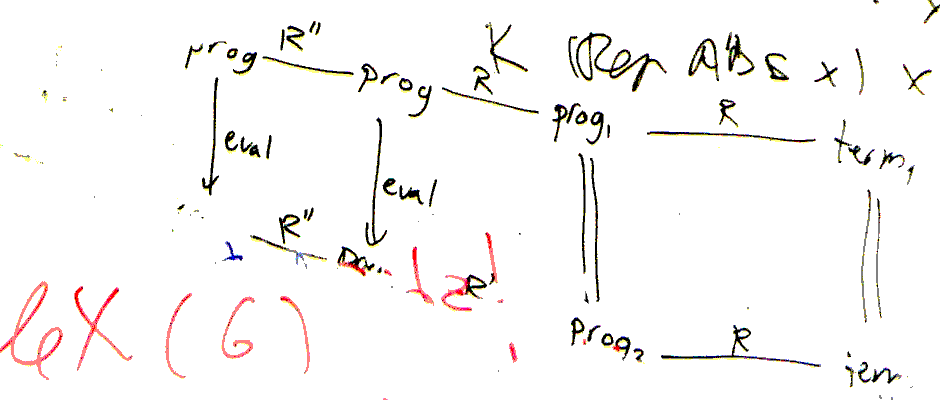 prog R" prog R K (Rep ABS x) x
prog₁ R term₁
eval
eval
R"
R'
leX (G)
prog₂ R